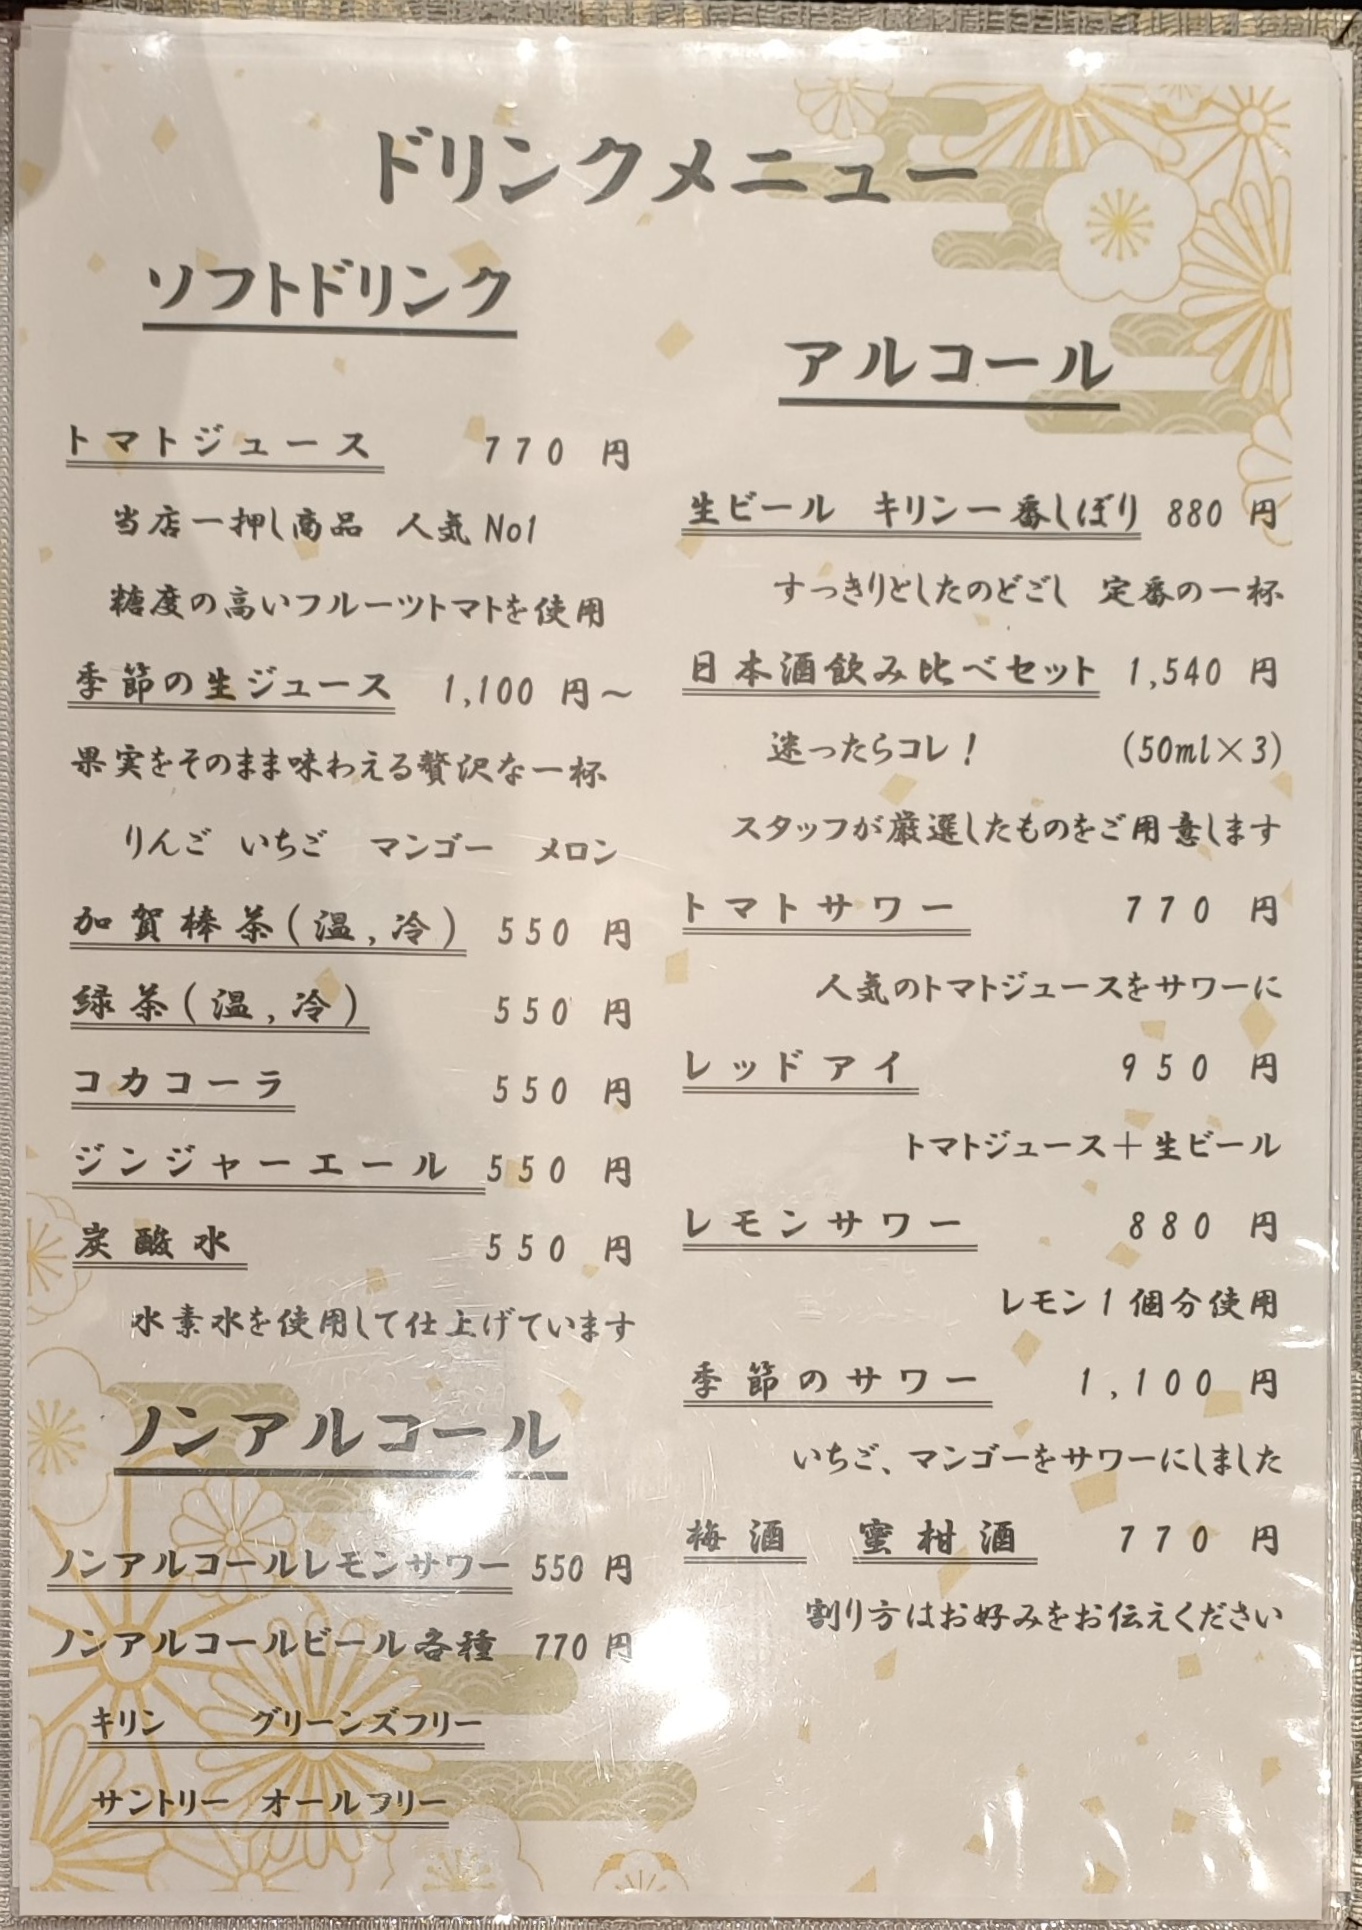 ドリンクメニュー
ソフトドリンク
トマトジュース 770 円
当店一押し商品 人気 No1
糖度の高いフルーツトマトを使用
季節の生ジュース 1,100 円～
果実をそのまま味わえる贅沢な一杯
りんご いちご マンゴー メロン
加賀棒茶(温,冷) 550 円
緑茶(温,冷) 550 円
コカコーラ 550 円
ジンジャーエール 550 円
炭酸水 550 円
水素水を使用して仕上げています
ノンアルコール
ノンアルコールレモンサワー 550 円
ノンアルコールビール各種 770 円
キリン グリーンズフリー
サントリー オールフリー
アルコール
生ビール キリン一番しぼり 880 円
すっきりとしたのどごし 定番の一杯
日本酒飲み比べセット 1,540 円
迷ったらコレ！ (50ml×3)
スタッフが厳選したものをご用意します
トマトサワー 770 円
人気のトマトジュースをサワーに
レッドアイ 950 円
トマトジュース＋生ビール
レモンサワー 880 円
レモン1個分使用
季節のサワー 1,100 円
いちご、マンゴーをサワーにしました
梅酒 蜜柑酒 770 円
割り方はお好みをお伝えください